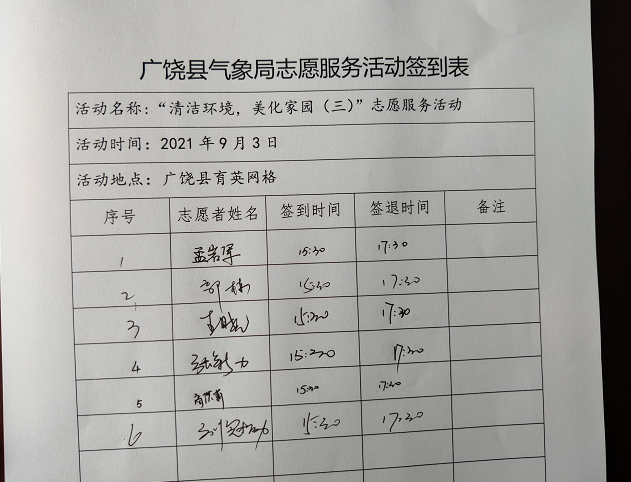 广饶县气象局志愿服务活动签到表
活动名称：“清洁环境，美化家园（三）”志愿服务活动
活动时间：2021 年 9 月 3 日
活动地点：广饶县育英网格
序号 志愿者姓名 签到时间 签退时间 备注
1 孟岩军 15:30 17:30
2 15:30 17:30
3 15:30 17:30
4 15:30 17:30
5 15:30 17:30
6 15:30 17:30